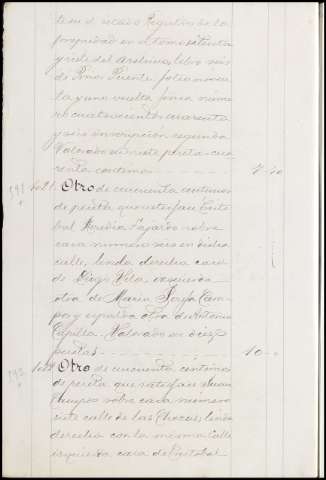 te en el citado Registro de la
propiedad en el tomo setenta
y siete del Archivo, libro seis
de Pinos Puente, folio noven-
ta y uno vuelto finca núme-
ro cuatrocientos cuarenta
y seis inscripción segunda
Valorado en siete pesetas cua-
renta centimos 7 40
Otro de cincuenta centimos
de peseta que satisface Cristo-
bal Heredia Fajardo sobre
casa número seis en dicha
calle, linda derecha casa
de Diego Vela, izquierda
otra de Maria Josefa Cam-
pos y espalda otra de Antonio
Capilla Valorado en diez
pesetas 10
Otro de cincuenta centimos
de peseta que satisface Juan
Campos sobre casa número
siete calle de las Chozas, linda
derecha con la misma calle
izquierda casa de Cristobal